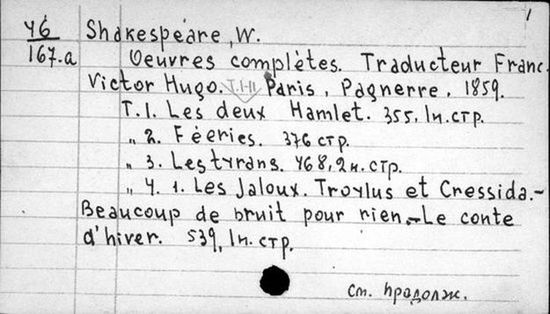 46
167.a
1
Shakespeare, W.
Oeuvres complètes. Traducteur Franc.
Victor Hugo. T.I-II Paris, Pagnerre, 1859.
T.1. Les deux Hamlet. 355, 1н.стр.
„ 2. Féeries. 376 стр.
„ 3. Les tyrans. 468, 2н. стр.
„ 4. 1. Les Jaloux. Troylus et Cressida.-
Beaucoup de bruit pour rien.-Le conte
d'hiver. 539, 1н. стр.
см. продолж.